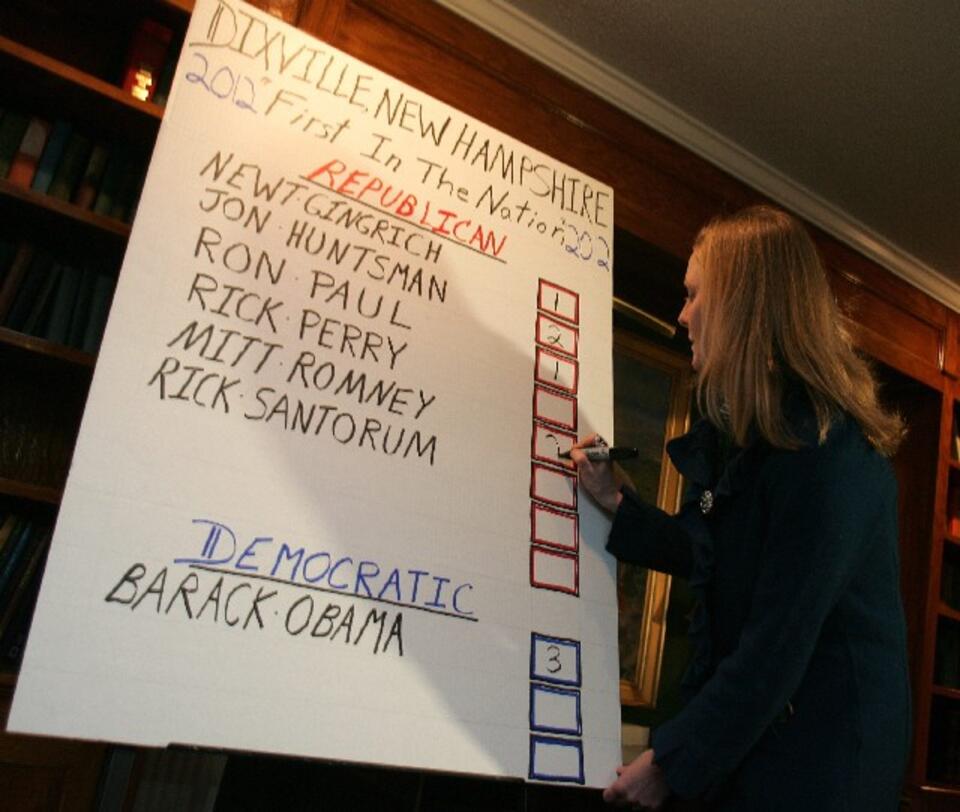 DIXVILLE, NEW HAMPSHIRE
2012 "First In The Nation" 2012
REPUBLICAN
NEWT·GINGRICH 1
JON·HUNTSMAN 2
RON·PAUL 1
RICK·PERRY
MITT·ROMNEY 2
RICK·SANTORUM
DEMOCRATIC
BARACK·OBAMA 3